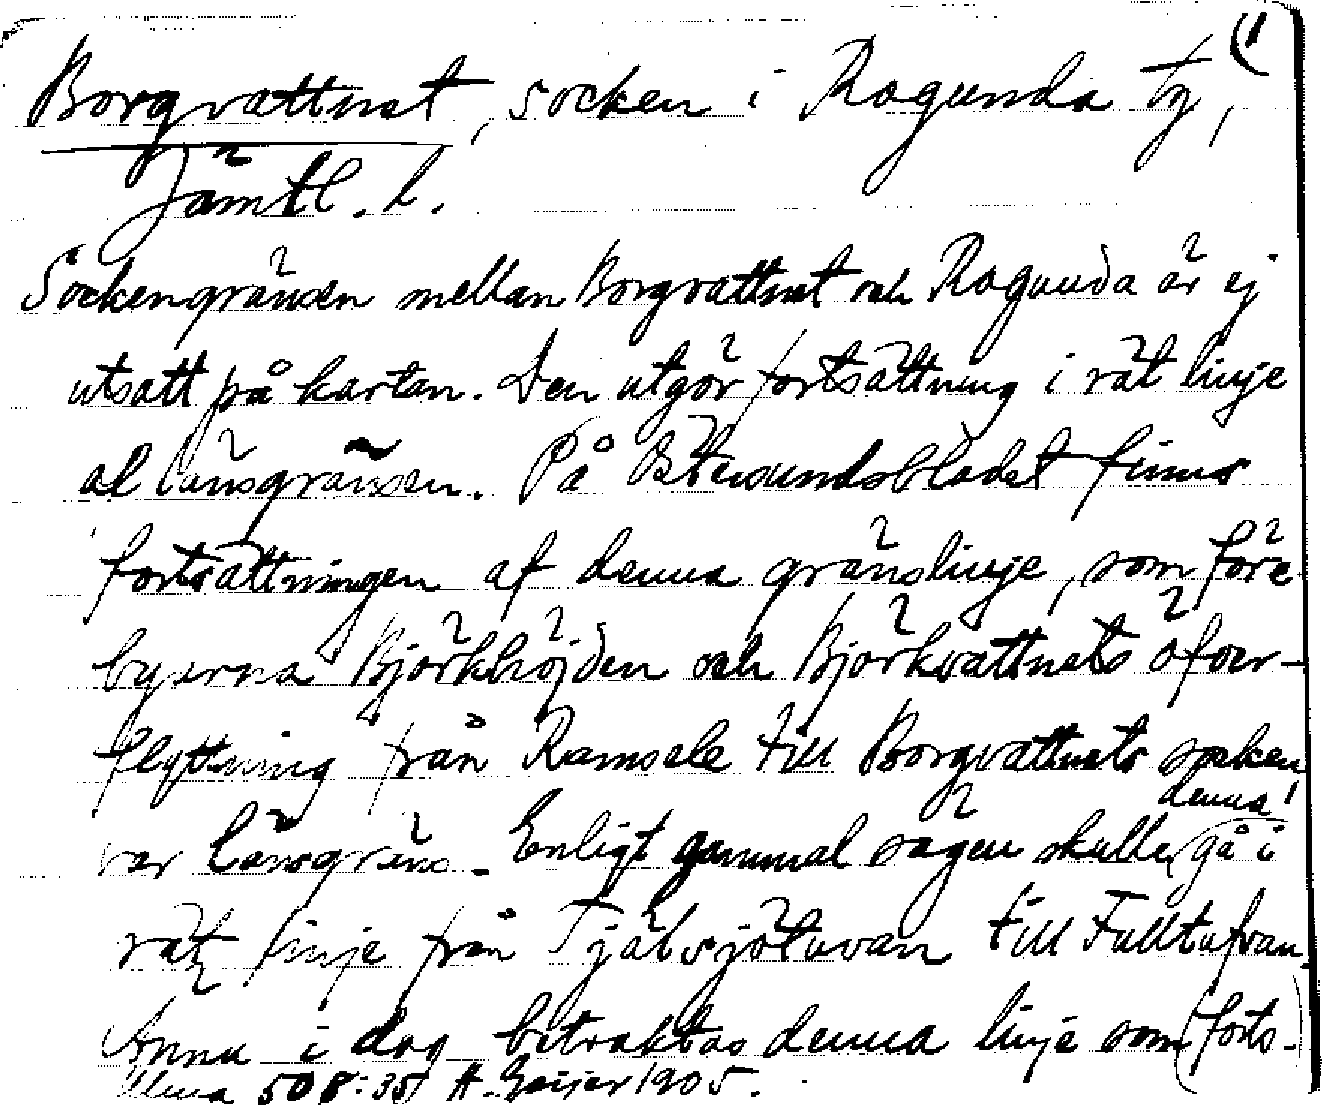 (1
Borgvattnet, socken i Ragunda tg,
Jämtl. l.
Sockengränsen mellan Borgvattnet och Ragunda är ej
utsatt på kartan. Den utgör fortsättning i rät linje
af länsgränsen. På Östersundsbladet finns
fortsättningen af denna gränslinje, som före
byarna Björkhöjden och Björkvattnets öfver-
flyttning från Ramsele till Borgvattnets socken
var länsgräns. Enligt gammal sägen skulle denna gå i
rät linje från Tjälsjötavan till Fulltafvan.
Ännu i dag betraktas denna linje som (forts.)
508:35 H. Geijer 1905.